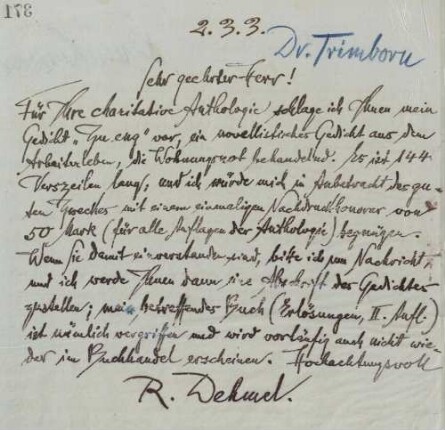 178
2.3.3.
Dr. Trimborn
Sehr geehrter Herr!
Für Ihre charitative Anthologie schlage ich Ihnen mein
Gedicht „Zu eng" vor, ein novellistisches Gedicht aus dem
Arbeiterleben, die Wohnungsnot behandelnd. Es ist 144
Verszeilen lang, und ich würde mich in Anbetracht des gu-
ten Zweckes mit einem einmaligen Nachdruckhonorar von
50 Mark (für alle Auflagen der Anthologie) begnügen.
Wenn Sie damit einverstanden sind, bitte ich um Nachricht,
und ich werde Ihnen dann eine Abschrift des Gedichtes
zustellen; mein betreffendes Buch (Erlösungen, II. Aufl.)
ist nämlich vergriffen und wird vorläufig auch nicht wie-
der im Buchhandel erscheinen. Hochachtungsvoll
R. Dehmel.